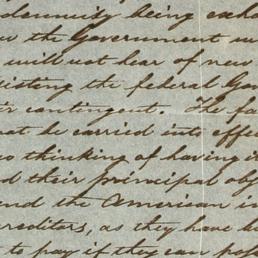 demnity being exha
w the Government w
will not hear of new
sisting the federal Gov
ir contingent. The fa
not be carried into effec
o thinking of having it
d their principal obj
and the American in
creditors, as they have b
to pay if they can pos